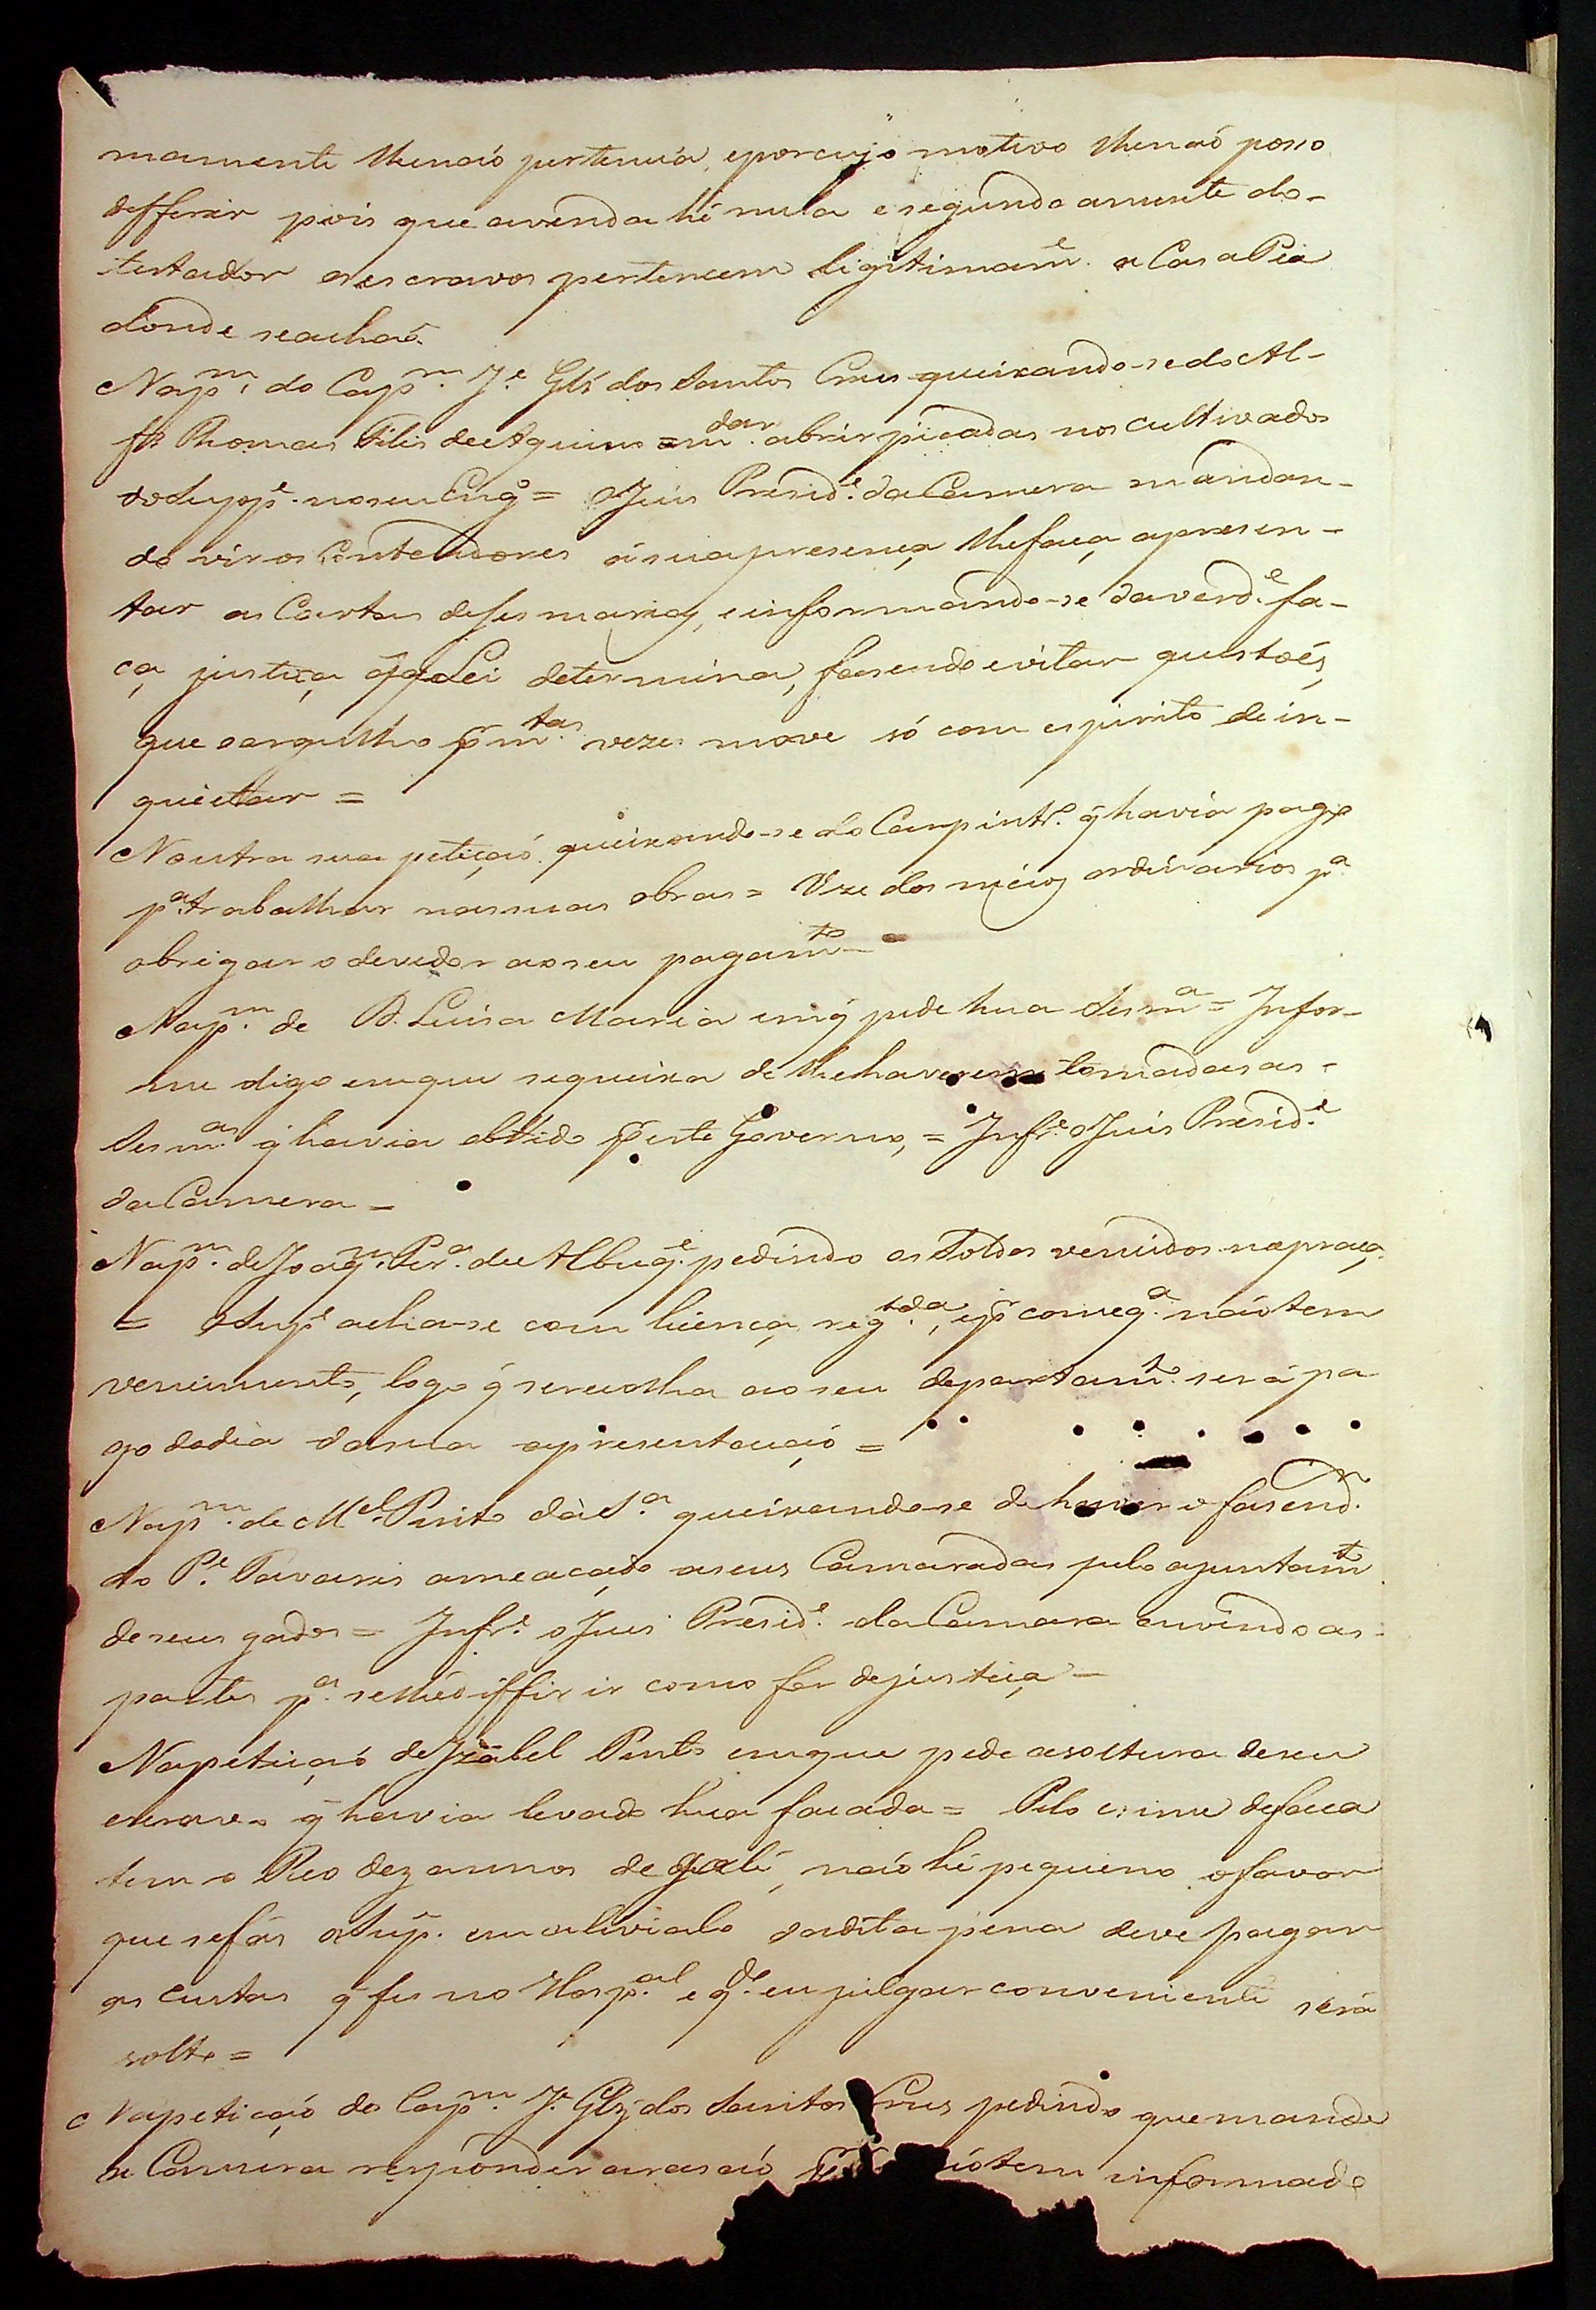 mamente lhenaõ pertencia, eporcujo motivo lhenaõ posso
defferir pois que avenda hé nula e segundo amente do-
testador os escravos pertencem ligitimamᵉ. a Casa Pia
donde seachaõ.
Napᵐ. do Capᵐ. Jᵉ Glz̃ dos Santos Crus queixando-se do Al-
fs̃ Thomas Filis de Aquino = mᵈᵃʳ. abrir picadas nos cultivados
do Suppᵉ. noseu Engᵒ = O Juis Presidᵉ. da Camera mandan-
do vir os Contendores ásuapresença lhefaça apresen-
tar as Cartas desesmarias, e informando-se daverdᵉ. fa-
ça justiça q̃ aLei determina, fasendo evitar questoẽs
que oorgulho p̃ mᵗᵃˢ. vezes move só com espirito de in-
quietar =
Noutra sua petiçaõ queixando-se do Carpintrᵒ. q̃ havia pago
pᵃ. trabalhar nassuas obras = Uze dos meios ordinarios pᵃ.
obrigar o devedor aoseu pagamᵗᵒ =
Napᵐ. de D. Luisa Maria emq̃ pede hua Sesmᵃ = Infor-
me digo emque sequeixa de lhehaverem tomadas as-
Sesmᵃˢ q̃ havia obtido p̃ este Governo, = Infrᵉ. o Juis Presidᵉ.
da Camera =
Napᵐ. de Joaqᵐ. Perᵃ. de Albuqᵉ. pedindo os Soldos vencidos napraça
= O Supᵉ acha-se com licença regᵗᵈᵃ, ep̃ conseqᵃ. naõ tem
vencimento, logo q̃ serecolha ao seu departamᵗᵒ. será pa-
go dodia dasua apresentaçaõ =
Napᵐ. de Mᵉˡ. Pinto da Sᵃ queixandose de haver o fasendʳ.
do Pᵉ. Tavares ameaçado aseus Camaradas pelo ajuntamᵗᵒ
de seus gados = Infrᵉ. o Juis Presidᵉ. da Camara ouvindo as-
partes pᵃ. selhe differir como for dejustiça =
Napetiçaõ de Izabel Pinto emque pede asoltura deseu
escravo q̃ havia levado hua facada = Pelo crime defaca
tem o Reo dez annos de Galé, naõ hé pequeno ofavor
que sefás aSup̃. em alivialo dadita pena deve pagar
as Custas q̃ fes no Hospᵃˡ. e qᵈᵒ. eu julgar conveniente será
solto =
Napetiçaõ do Capᵐ. Jᵉ. Glz̃ dos Santos Crus pedindo quemande
a Camera responder arasaõ p̃ tem informado